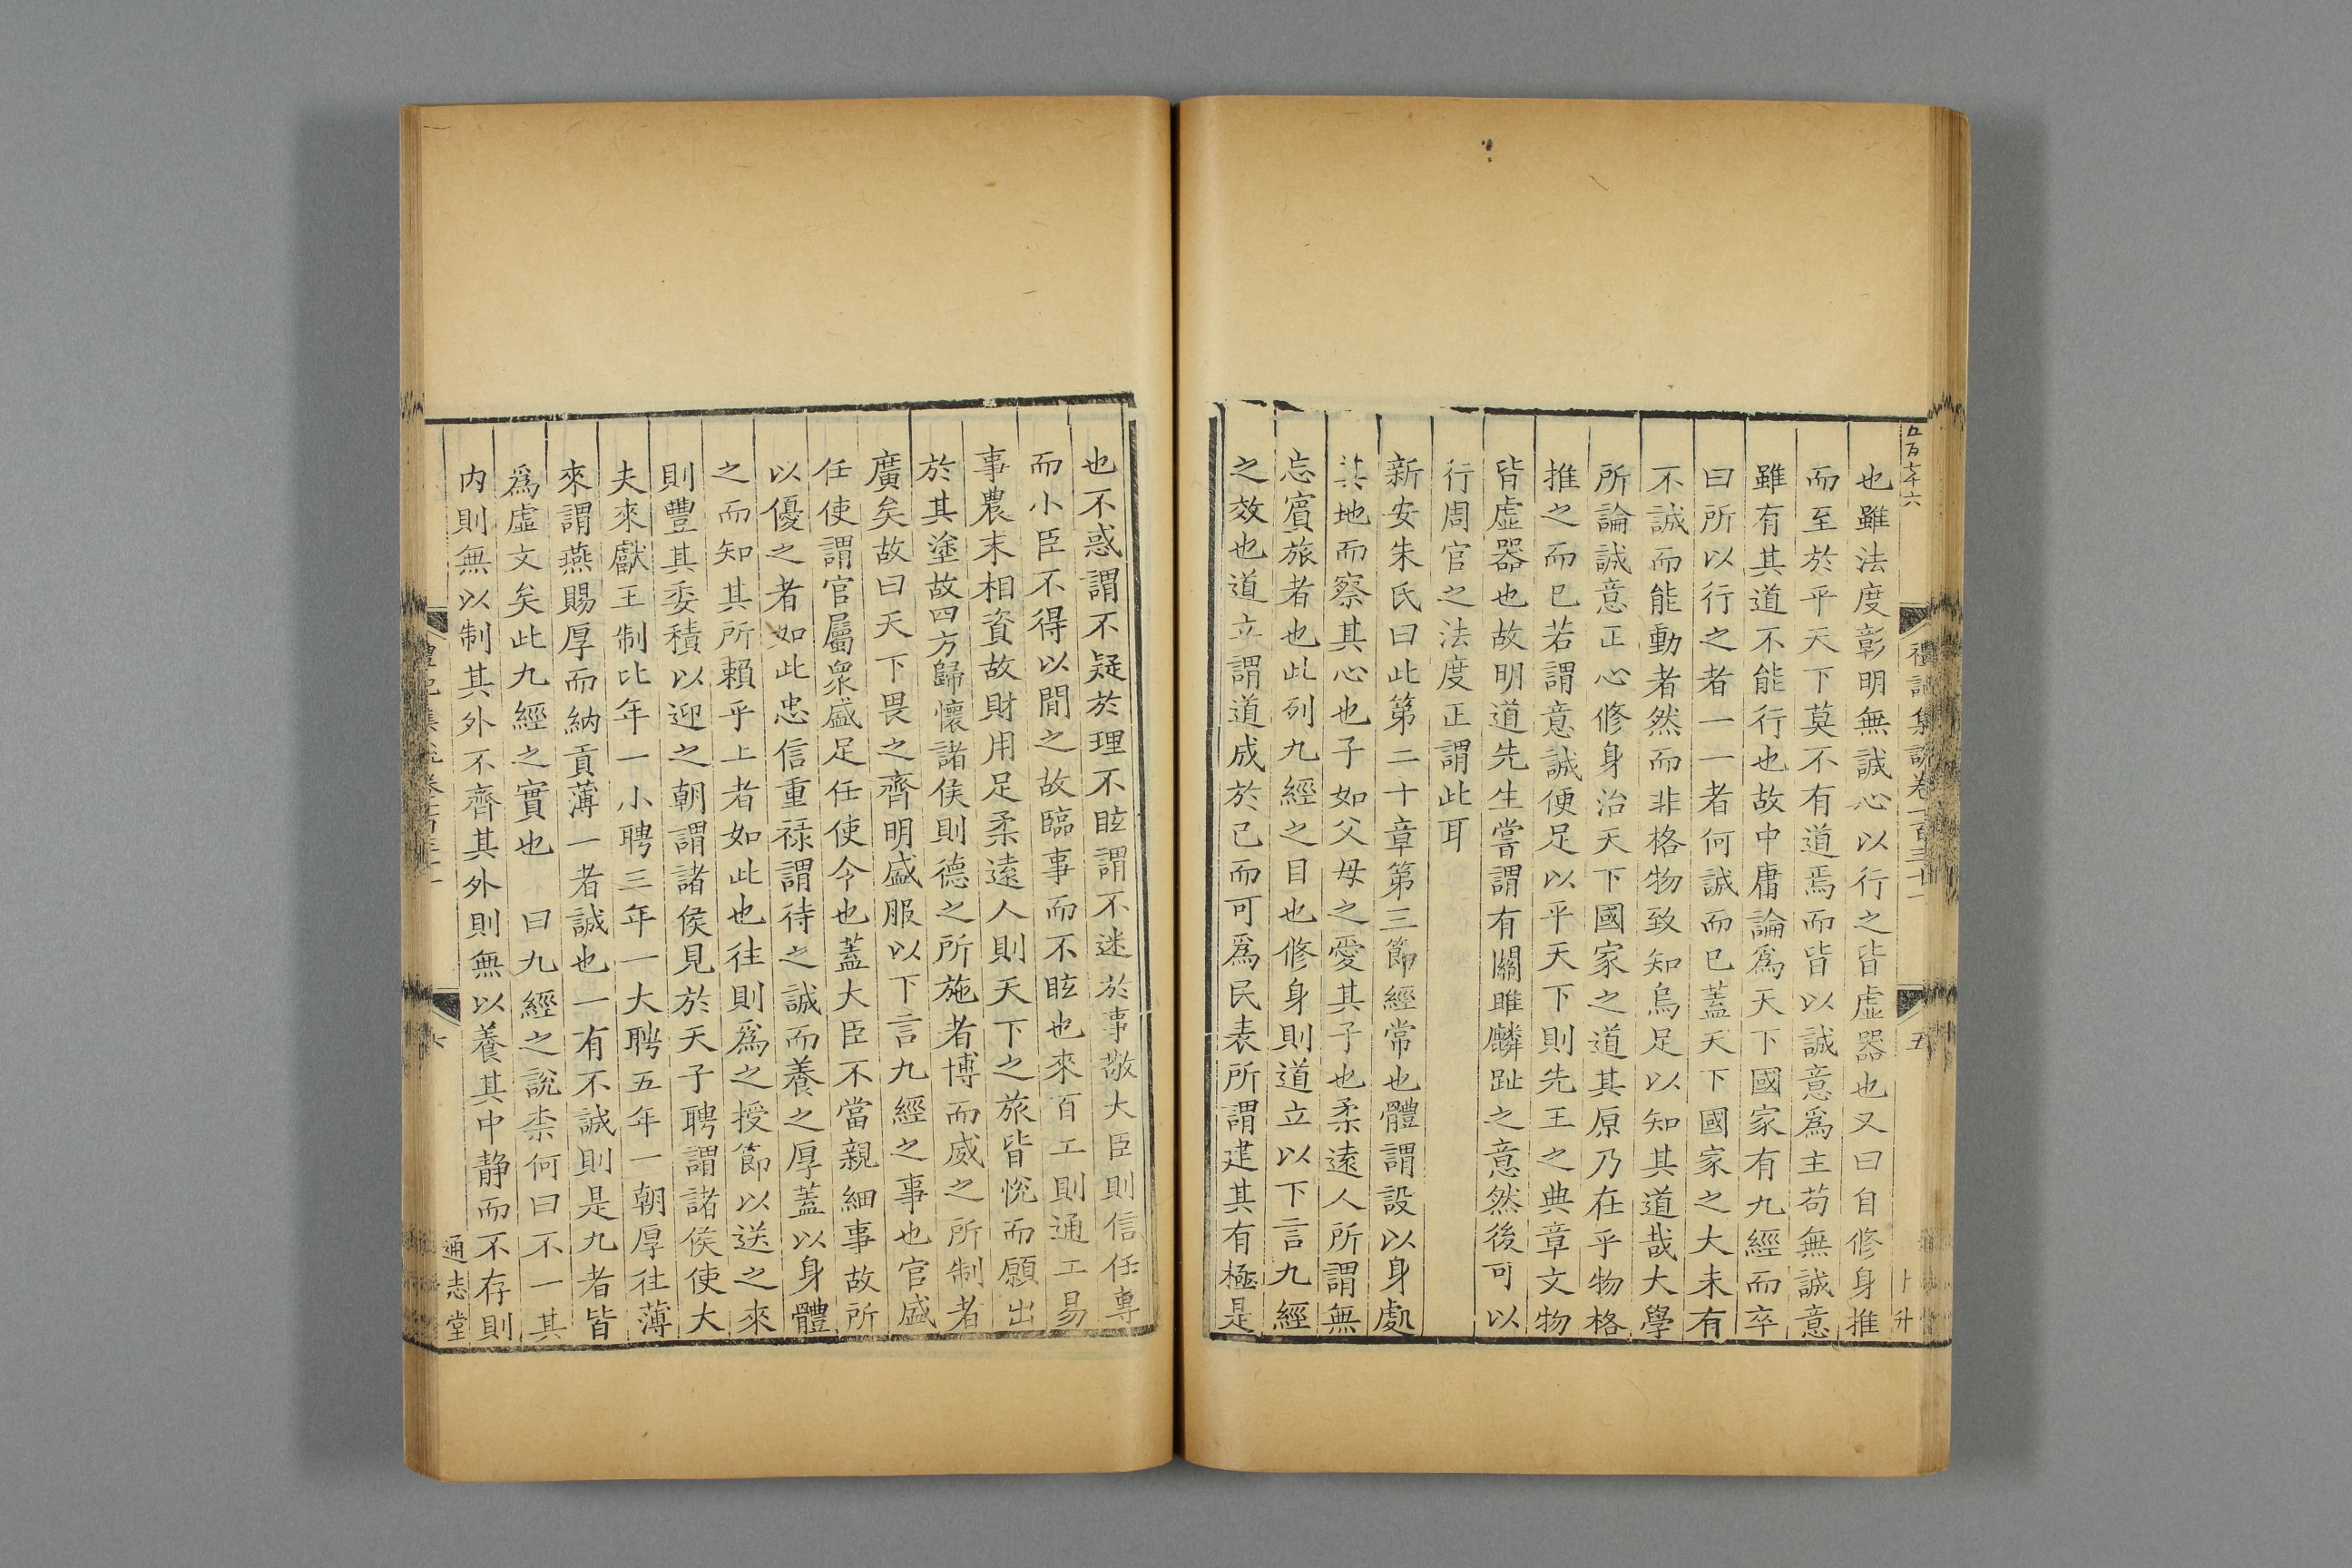 禮記集說卷一百三十一
五
也雖法度彰明無誠心以行之皆虛器也又曰自修身推
而至於平天下莫不有道焉而皆以誠意爲主苟無誠意
雖有其道不能行也故中庸論爲天下國家有九經而卒
曰所以行之者一一者何誠而已蓋天下國家之大未有
不誠而能動者然而非格物致知烏足以知其道哉大學
所論誠意正心修身治天下國家之道其原乃在乎物格
推之而已若謂意誠便足以平天下則先王之典章文物
皆虛器也故明道先生嘗謂有關雎麟趾之意然後可以
行周官之法度正謂此耳
新安朱氏曰此第二十章第三節經常也體謂設以身處
其地而察其心也子如父母之愛其子也柔遠人所謂無
忘賓旅者也此列九經之目也修身則道立以下言九經
之效也道立謂道成於己而可爲民表所謂建其有極是
也不惑謂不疑於理不眩謂不迷於事敬大臣則信任專
而小臣不得以間之故臨事而不眩也來百工則通工易
事農末相資故財用足柔遠人則天下之旅皆悅而願出
於其塗故四方歸懷諸侯則德之所施者博而威之所制者
廣矣故曰天下畏之齊明盛服以下言九經之事也官盛
任使謂官屬衆盛足任使令也蓋大臣不當親細事故所
以優之者如此忠信重祿謂待之誠而養之厚蓋以身體
之而知其所賴乎上者如此也往則爲之授節以送之來
則豐其委積以迎之朝謂諸侯見於天子聘謂諸侯使大
夫來獻王制比年一小聘三年一大聘五年一朝厚往薄
來謂燕賜厚而納貢薄一者誠也一有不誠則是九者皆
爲虛文矣此九經之實也 曰九經之說柰何曰不一其
内則無以制其外不齊其外則無以養其中靜而不存則
六
通志堂